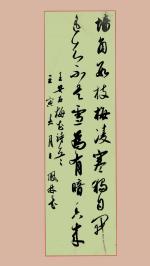 墙角数枝梅凌寒独自开
遥知不是雪为有暗香来
王安石梅花诗
壬寅